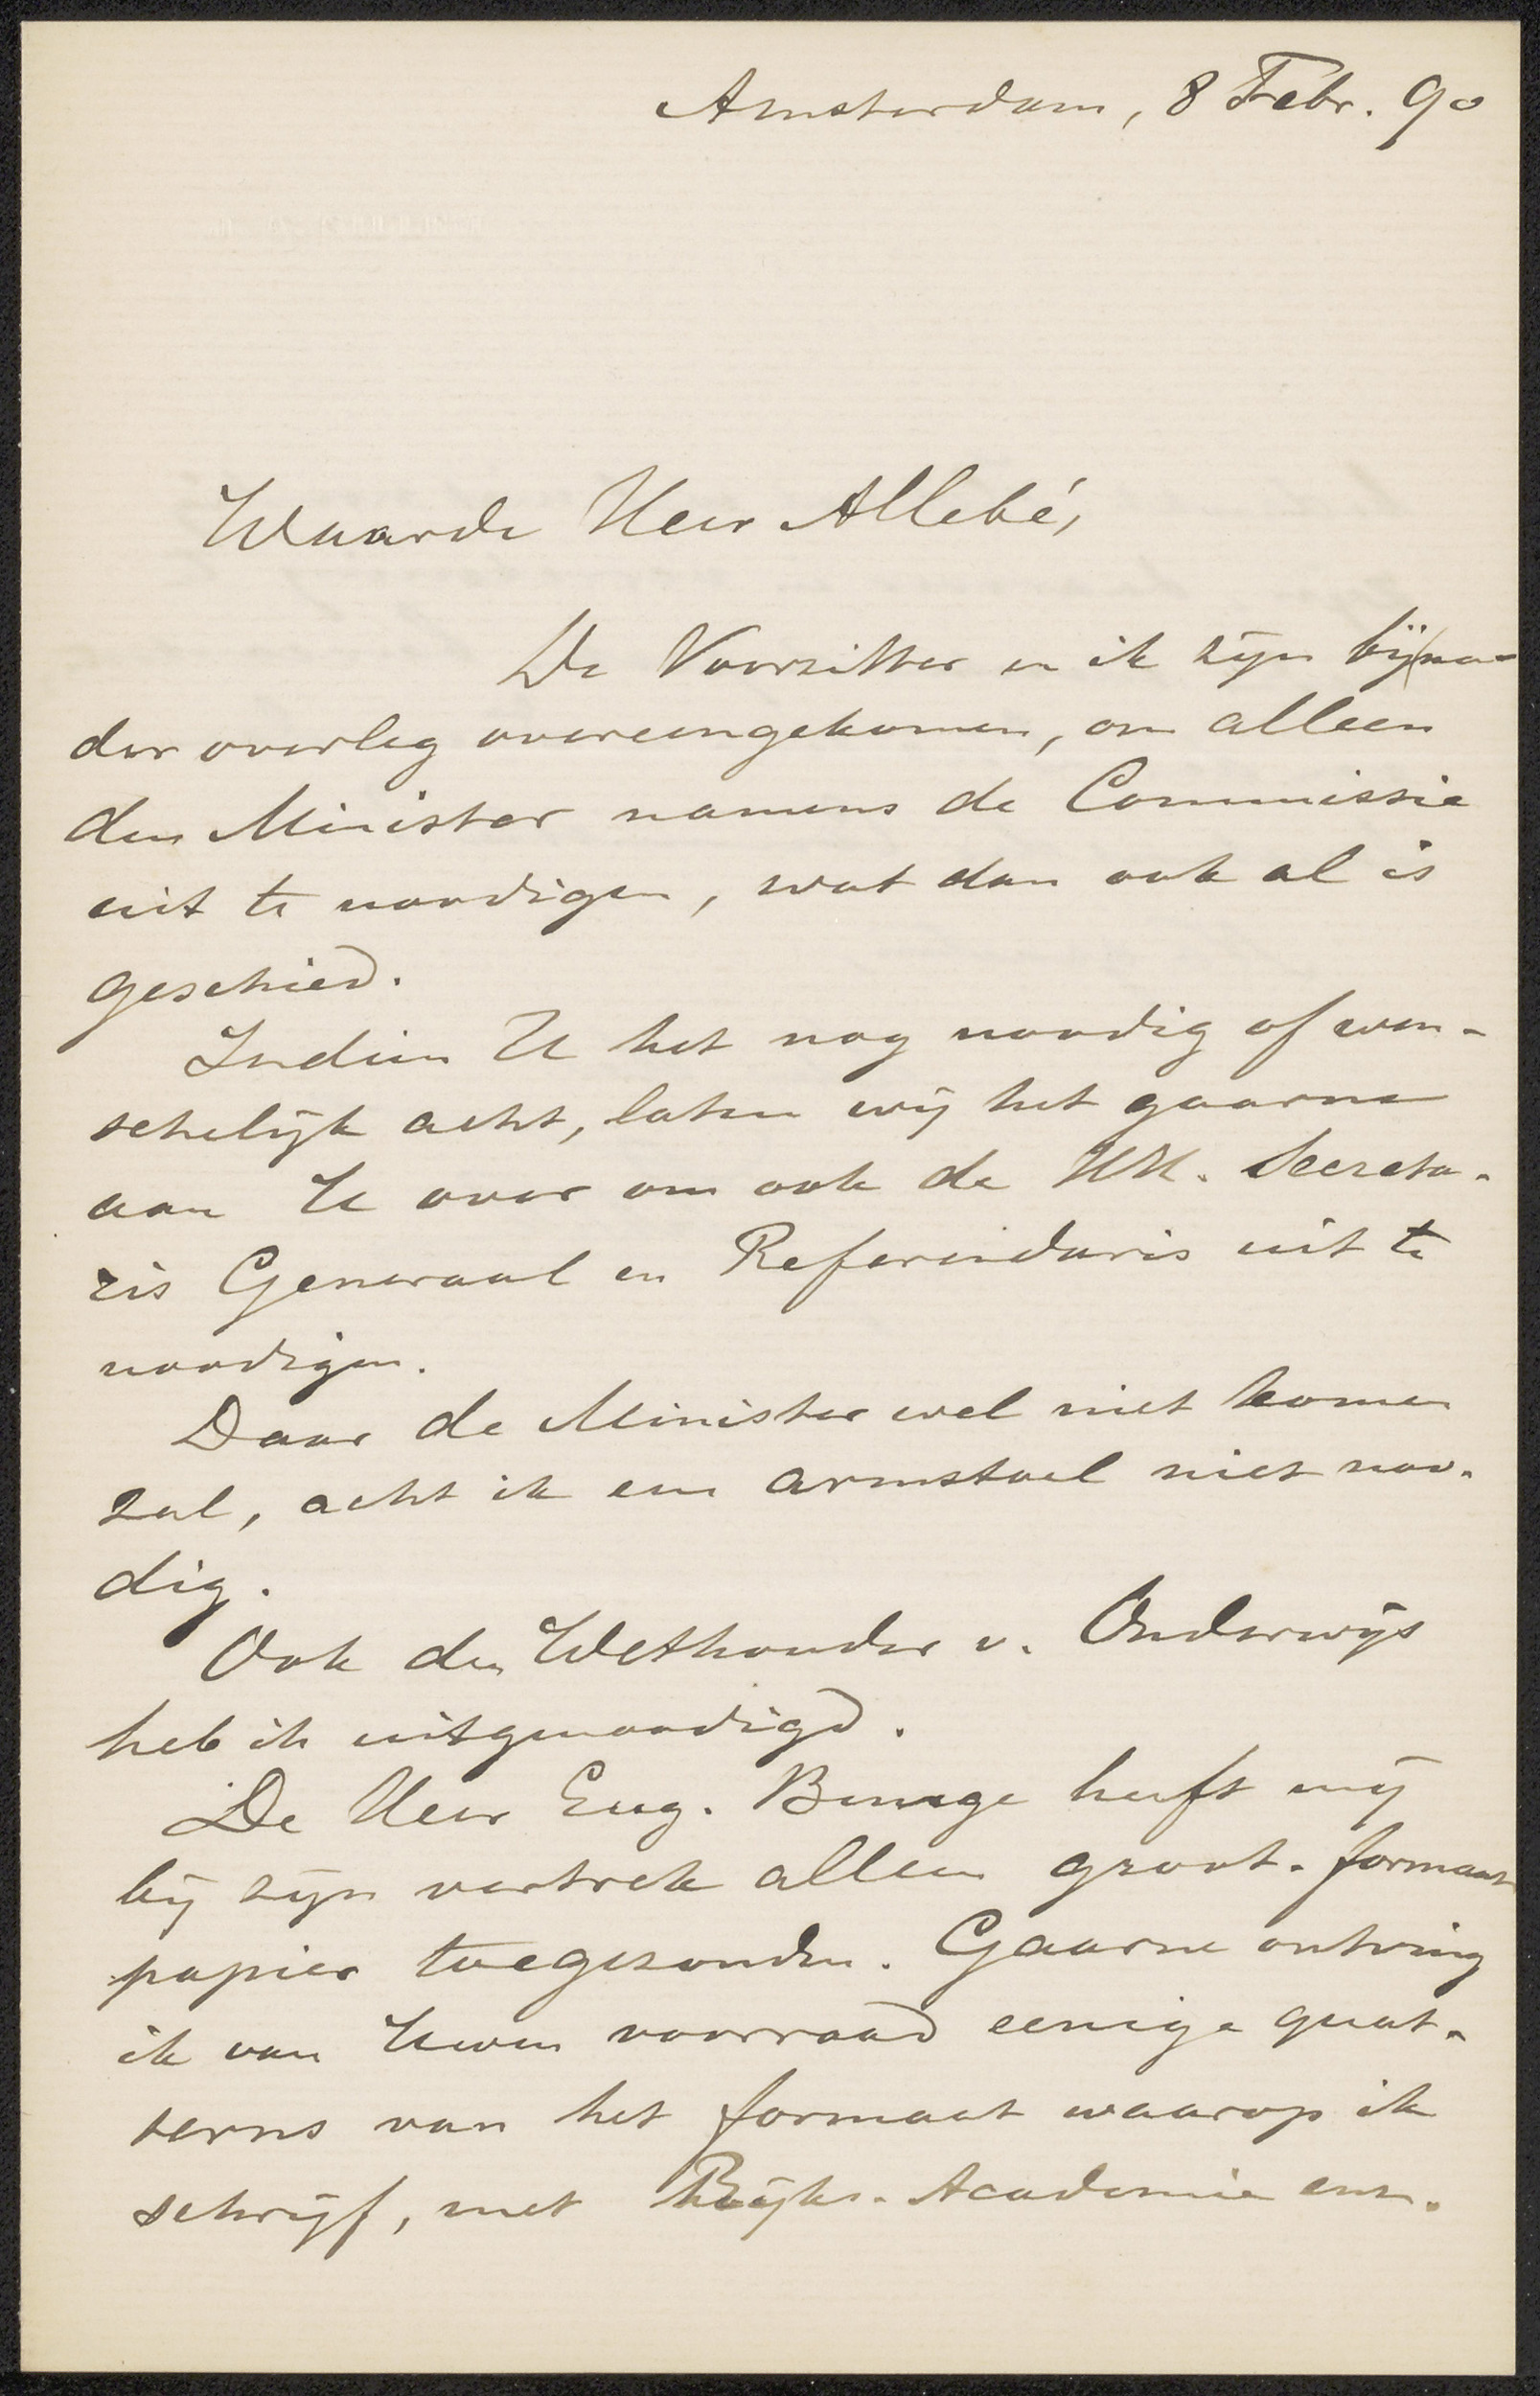 Amsterdam, 8 Febr. 90
Waarde Heer Allebé,
De Voorzitter en ik zijn bij na-
der overleg overeengekomen, om alleen
den Minister namens de Commissie
uit te noodigen, wat dan ook al is
geschied.
Indien U het nog noodig of wen-
schelijk acht, laten wij het gaarne
aan U over om ook de HH. Secreta-
ris Generaal en Referendaris uit te
noodigen.
Daar de Minister wel niet komen
zal, acht ik een armstoel niet noo-
dig.
Ook den Wethouder v. Onderwijs
heb ik uitgenoodigd.
De Heer Eug. Bunge heeft mij
bij zijn vertrek alleen groot-formaat
papier toegezonden. Gaarne ontving
ik van Uwen voorraad eenige quat-
terns van het formaat waarop ik
schrijf, met Rijks-Academie enz.